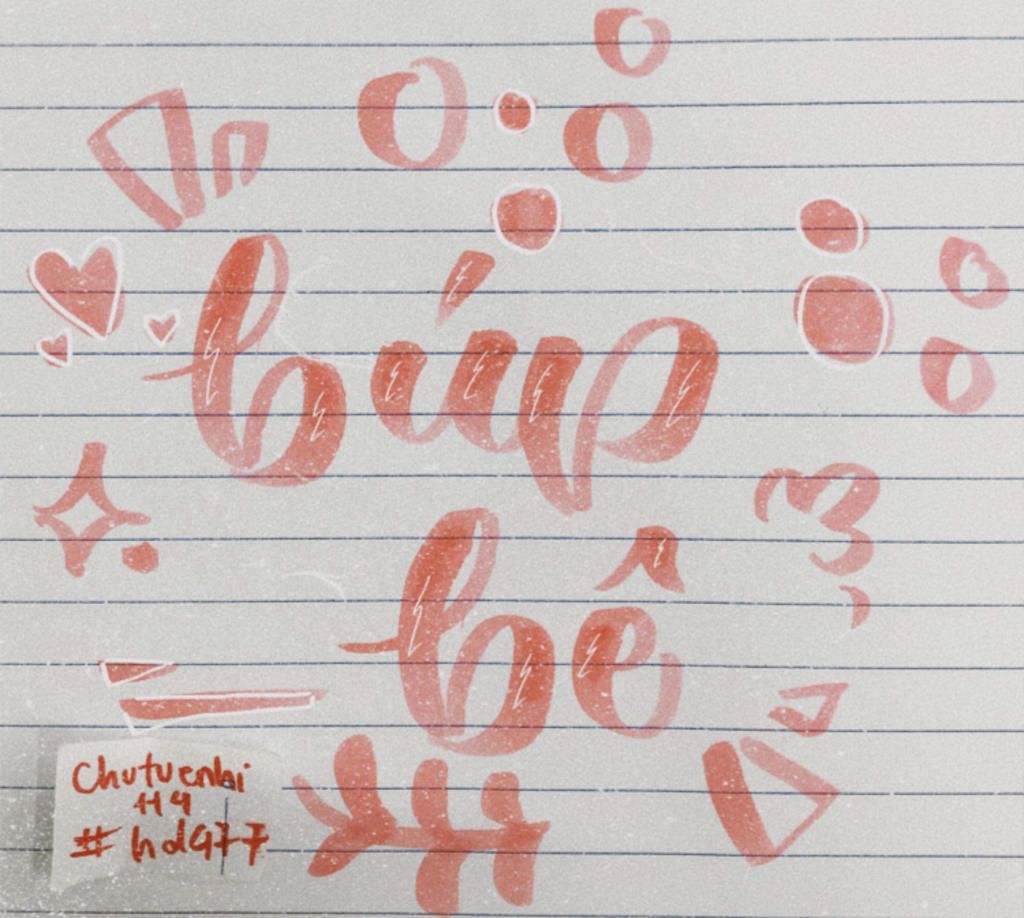 búp
bê
Chutuenhi
449
# hd977